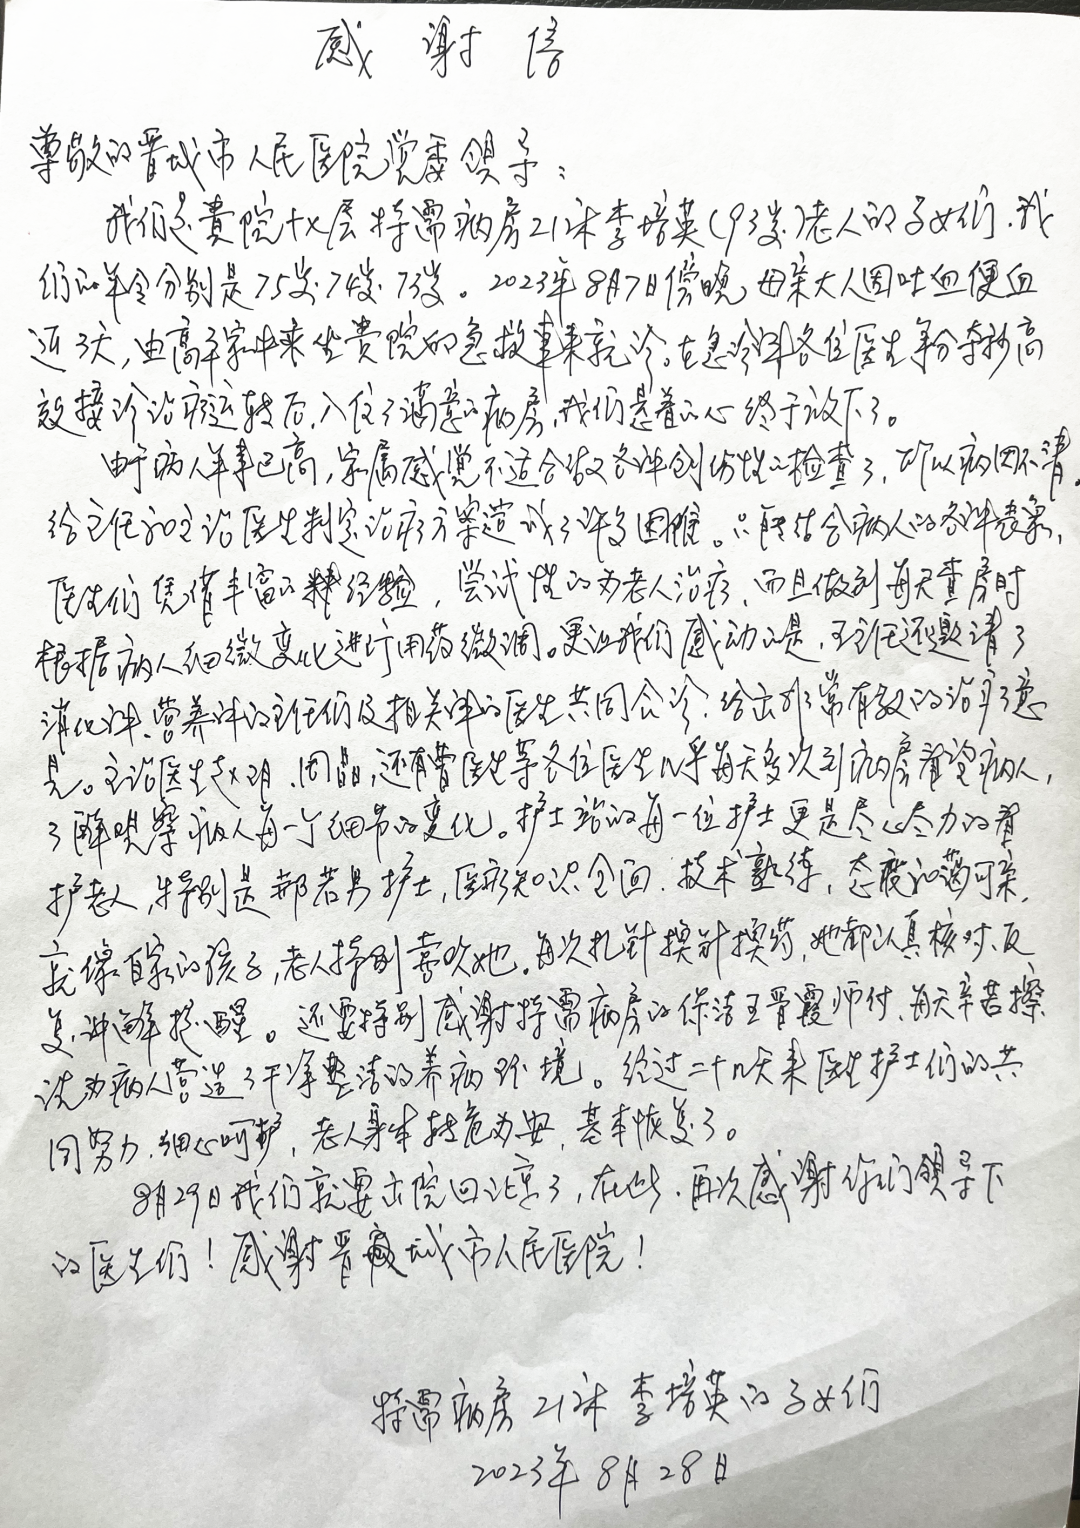 感谢信
尊敬的晋城市人民医院党委领导：
我们是贵院十九层特需病房21床李培英(93岁)老人的子女们.我
们的年令分别是75岁.74岁.73岁。2023年8月7日傍晚,母亲大人因吐血便血
近3天,由高平家中来坐贵院的急救车来就诊。在急诊科各位医生争分夺秒高
效接诊治疗运转后,入住了满意的病房,我们悬着的心终于放下了。
由于病人年事已高,家属感觉不适合做各种创伤性的检查了,所以病因不清。
给主任和主治医生判定治疗方案造成了许多困难。只能结合病人的各种表象,
医生们凭借丰富的经验,尝试性的为老人治疗,而且做到每天查房时
根据病人细微变化进行用药微调。更让我们感动的是,王主任还邀请了
消化科、营养科的主任们及相关科的医生共同会诊.给出非常有效的治疗意
见。主治医生赵玥.田晶,还有曹医生等各位医生几乎每天多次到病房看望病人,
了解观察病人每一个细节的变化。护士站的每一位护士更是尽心尽力的看
护老人,特别是郝若男护士,医疗知识全面.技术熟练,态度和蔼可亲,
就像自家的孩子,老人特别喜欢她。每次扎针换针换药,她都认真核对、反
复讲解提醒。还要特别感谢特需病房的保洁王晋霞师付、每天辛苦擦
洗为病人营造了干净整洁的养病环境。经过二十几天来医生护士们的共
同努力.细心呵护,老人身体转危为安,基本恢复了。
8月29日我们就要出院回北京了,在此.再次感谢你们领导下
的医生们!感谢晋城市人民医院!
特需病房21床李培英的子女们
2023年8月28日